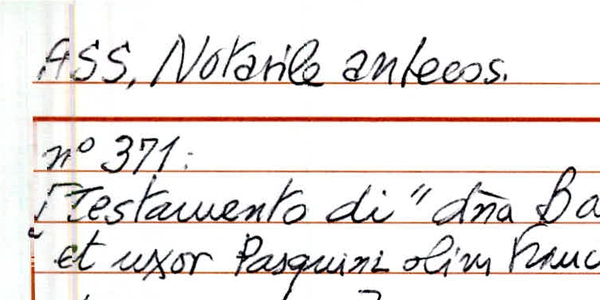 ASS, Notarile antecos.
n° 371:
Testamento di "dña Ba
et uxor Pasquini olim Franc